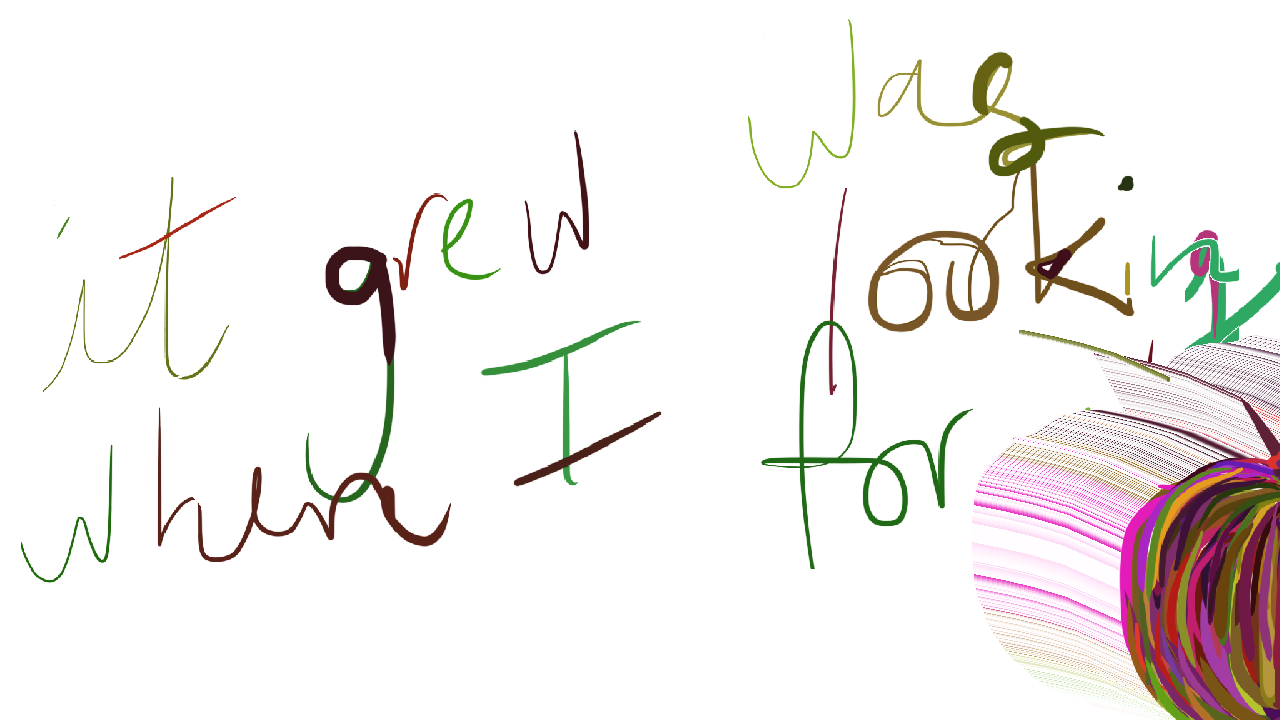 it grew
when I
was
looking
for